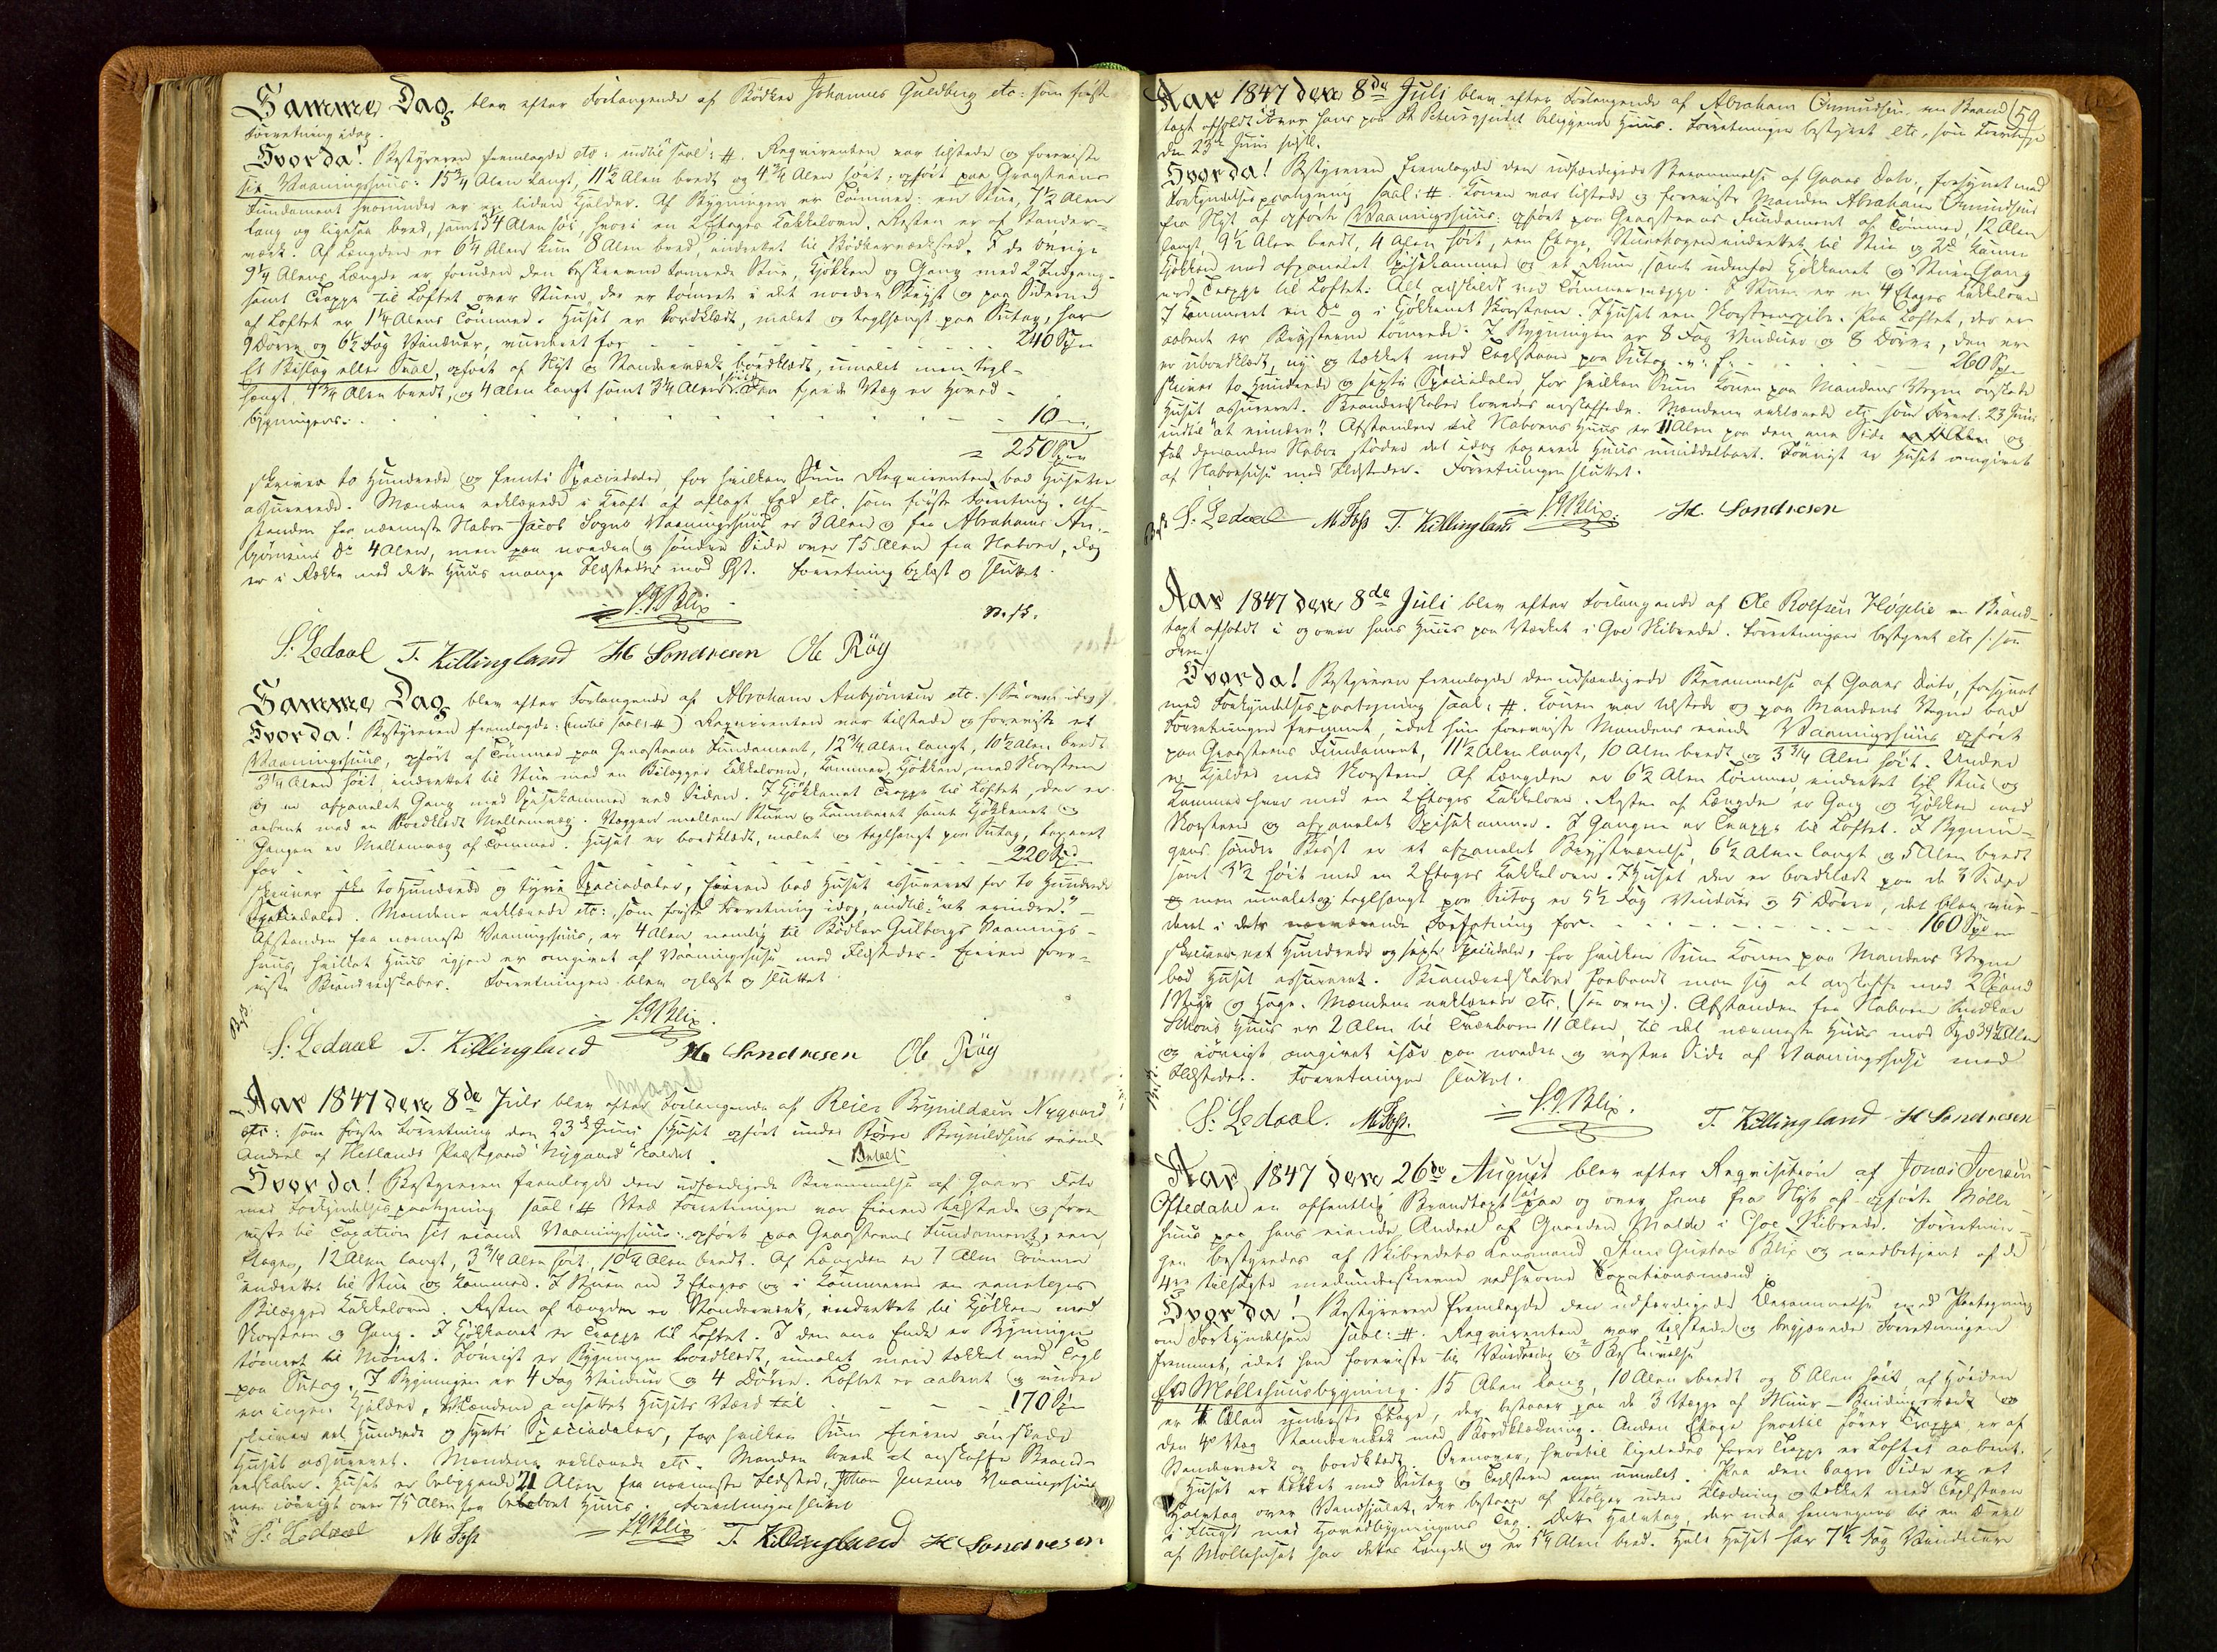 Samme Dag blev efter Forlangende af Bödker Johannes Guldberg etc: som first
Forretning idag.
Hvorda! Bestyreren fremlagde etc: indtil "saal: #. Reqvirenten var tilstede og foreviste
sit Vaaningshuus: 15 3/4 Alen langt, 11 1/2 Alen bredt og 4 3/4 Alen höit, opfört paa Graasteens
Fundament hvorunder er en liden Kjelder. Af Bygningen er Tömmer: en Stue, 7 1/2 Alen
lang og ligesaa bred, samt 3 1/4 Alen höi, hvori en 2 Etages Kakkelovn. Resten er af Stander-
værk. Af Længden er 6 1/4 Alens Rum 8 Alen bred, indrettet til Bödkerværksted. I de övrige
9 1/4 Alens Længde er foruden den beskrevne tömrede Stue, Kjökken og Gang med 2 Indgang
samt Trappe til Loftet over Stuen der er tömret i det nordre Bryst og paa Siderne
af Loftet er 1 1/4 Alens Tömmer. Huset er bordklædt, malet og teglhængt paa Sutag, har
9 Dörre og 6 1/2 Fag Vinduer, vurderet for 240 Spd
Et Bislag eller Sval, opfört af Nyt og Standerværk bordklædt, umalet men tegl-
hængt 4 3/4 Alen bredt, og 4 Alen langt samt 3 1/4 Alen höit. Den fjerde Væg er Hoved-
bygningens. 10 "
= 250 Spd
skriver to Hundrede og femti Speciedaler, for hvilken Sum Reqvirenten bad Husene
assurerede. Mændene erklærede i Kraft af aflagt Eed etc. som förste Forretning. Af-
standen fra nærmeste Nabo Jacob Sognes Vaaningshuus er 3 Alen og fra Abrahams An-
björnsens do 4 Alen, men paa nordre og söndre Side over 75 Alen fra Naboer, dog
er i Række med dette Huus mange Ildsteder mod Öst. Forretning oplæst og sluttet.
S. G. Blix
S: Ledaal T. Killingland H Sondresen Ole Röy
Samme Dag blev efter Forlangende af Abraham Anbjörnsen etc: /: See oven idag :/
Hvorda! Bestyreren fremlagde: (indtil saal: #) Reqvirenten var tilstede og foreviste et
Vaaningshuus, opfört af Tömmer paa Graasteens Fundament, 12 3/4 Alen langt, 10 1/2 Alen bredt
3 1/4 Alen höit, indrettet til Stue med en Bilægger Kakkelovn, Kammer, Kjökken, med Skorsteen
og en afpanelet Gang med Spisekammer ved Siden. I Kjökkenet Trappe til Loftet, der er
aabent med en Bordklædt Mellemvæg. Væggen mellem Stuen og Kammeret samt Kjökkenet og
Gangen er Mellemvæg af Tömmer. Huset er bordklædt, malet og teglhængt paa Sutag, taxeret
for 220 Spd
skriver to Hundrede og tyve Speciedaler, Eieren bad Huset assureret for to Hundrede
Speciedaler. Mændene erklærede etc:, som förste Forretning idag, indtil: "at erindre." -
Afstanden fra nærmeste Vaaningshuus, er 4 Alen nemlig til Bödker Gulbergs Vaanings-
huus, hvilket Huus igjen er omgivet af Vaaningshuse med Ildsteder. Eieren fore-
viste Brandredskaber. Forretningen blev oplæst og sluttet
S. G. Blix.
S: Ledaal T. Killingland H Sondresen Ole Röy
Nygaard
Aar 1847 den 8de Juli blev efter Forlangende af Reier Brynildsen Nygaard
etc: som förste Forretning den 23de Juni Huset opfört under Börre Brynildsens eiende
Andeel af Hetlands Præstgaard "Nygaard" kaldet.
Betalt
Hvorda! Bestyreren fremlagde den udfærdigede Berammelse af Gaars Dato
med Forkyndelses paategning saal: # Ved Forretningen var Eieren tilstede og fore
viste til Taxation sit eiende Vaaningshuus: opfört paa Graasteens Fundament, een
Etages, 12 Alen langt, 3 3/4 Alen höit, 10 1/4 Alen bredt. Af Længden er 7 Alen Tömmer
indrettet til Stue og Kammer. I Stuen en 3 Etages og i Kammeret en eenetages
Bilægger Kakkelovn. Resten af Længden er Standerværk, indrettet til Kjökken med
Skorsteen og Gang. I Kjökkenet er Trappe til Loftet. I den ene Ende er Bygningen
tömret til Mönet. Forövrigt er Bygningen bordklædt, umalet men tækket med Tegl
paa Sutag. I Bygningen er 4 Fag Vinduer og 4 Dörre. Loftet er aabent og under
er ingen Kjelder. Mændene ansattet Husets Værd til 170 Spd
skriver eet Hundrede og sytti Speciedaler, for hvilken Sum Eieren önskede
Huset assureret. Mændene erklærede etc. Manden lovede at anskaffe Brand-
redskaber. Huset er beliggende 21 Alen fra nærmeste Ildsted, Johan Jensens Vaaningshuus
men iövrigt over 75 Alen fra beboet Huus. Forretningen sluttet
S. G. Blix
S: Ledaal M Foss T. Killingland H Sondresen
59
Aar 1847 den 8de Juli blev efter Forlangende af Abraham Omundsen en Brand
taxt afholdt over hans paa St Petersgjerdet beliggende Huus. Forretningen bestyret etc, som Forretng
den 23de Juni sidstl.
Hvorda! Bestyreren fremlagde den udfærdigede Berammelse af Gaars Dato, forsynet med
Forkyndelsespaategning saal: #. Konen var tilstede og foreviste Manden Abraham Omundsens
fra Nyt af opförte Vaaningshuus: opfört paa Graasteens Fundament af Tömmer, 12 Alen
langt, 9 1/2 Alen bredt, 4 Alen höit, een Etage, Stueetagen indrettet til Stue og 2de Kamre
Kjökken med afpanelet Spisekammer og et Rum samt udenfor Kjökkenet og Stuen Gang
med Trappe til Loftet. Alt adskildt ved Tömmervægge. I Stuen er en 4 Etages Kakkelovn
I Kammeret en do og i Kjökkenet Skorsteen. I Huset een Skorsteenspibe. Paa Loftet, der er
aabent er Brysterne tömrede. I Bygningen er 8 Fag Vinduer og 8 Dörre, den er
er ubordklædt, ny og tækket med Teglsteen paa Sutag. 260 Spd
skriver to Hundrede og sexti Speciedaler, for hvilken Sum Konen paa Mandens Vegne önskede
Huset assureret. Brandredskaber lovedes anskaffede. Mændene erklærede etc som Forret. 23 Juni
indtil "at erindre". Afstanden til Naboens Huus er 11 Alen paa den ene Side og
paa den anden Nabo stöder det idag taxerede Huus umiddelbart. Forövrigt er Huset omgivet
af Naboehuse med Ildsteder. Forretningen sluttet.
S. G. Blix.
S. Ledaal M Foss T. Killingland H. Sondresen
Aar 1847 den 8de Juli blev efter Forlangende af Ole Rolfsen Högelie en Brand-
taxt afholdt i og over hans Huus paa Værket i Goe Skibrede. Forretningen bestyret etc /: see
oven :/
Hvorda! Bestyreren fremlagde den udfærdigede Berammelse af Gaars Dato, forsynet
med Forkyndelsespaategning saal: #. Konen var tilstede og paa Mandens Vegne bad
Forretningen fremmet, idet hun foreviste Mandens eiende Vaaningshuus opfört
paa Graasteens Fundament, 11 1/2 Alen langt, 10 Alen bredt og 3 3/4 Alen höit. Under
er Kjelder med Skorsteen. Af Længden er 6 1/2 Alen Tömmer, indrettet til Stue og
Kammer hver med en 2 Etages Kakkelovn. Resten af Længden er Gang og Kjökken med
Skorsteen og afpanelet Spisekammer. I Gangen er Trappe til Loftet. I Bygnin-
gens söndre Bryst er et afpanelet Brystværelse, 6 1/2 Alen langt og 5 Alen bredt
samt 3 1/2 höit med en 2 Etages Kakkelovn. Huset der er bordklædt paa de 3 Sider
men umalet og teglhængt paa Sutag er 5 1/2 Fag Vinduer og 5 Dörre, det blev vur-
deret i dets nærværende Forfatning for 160 Spd
skriver eet Hundrede og sexti Speciedaler, for hvilken Sum Konen paa Mandens Vegne
bad Huset assureret. Brandredskaber forbandt man sig at anskaffe med 2 Spand
1 Stige og Hage. Mændene erklærede etc. (see oven:). Afstanden fra Naboen Snedker
Huus er 2 Alen til 11 Alen, til det nærmeste Huus mod Syd 34 1/2 Alen
og iövrigt omgivet især paa nordre og vestre Side af Vaaningshuse med
Ildsteder. Forretningen sluttet.
S. G. Blix.
S: Ledaal. M Foss. T. Killingland H Sondresen
Aar 1847 den 26de August blev efter Reqvisition af Jonas Iversen
Oftedahl en offentlig Brandtaxt paa og over hans fra Nyt af opförte Mölle-
huus paa hans eiende Andeel af Gaarden Malde i Goe Skibrede. Forretnin-
gen bestyredes af Skibredets Lensmand Sems Gustav Blix og medbetjent af de
4re tilsagte medunderskrevne edsvorne Taxationsmænd.
Hvorda! Bestyreren fremlagde den udfærdigede Berammelse med Paategning
om Forkyndelsen saal: #. Reqvirenten var tilstede og begjærede Forretningen
fremmet, idet han foreviste til Vurdering og Beskrivelse
En Möllehuusbygning. 15 Alen lang, 10 Alen bredt og 8 Alen höit af Höiden
er 4 Alen underste Etage, der bestaaer paa de 3 Vægge af Muur-Bindingsværk og
den 4de Væg Standerværk med Bordklædning. Anden Etage hvortil förer Trappe er af
Standerværk og bordklædt. Ovenover, hvortil ligeledes förer Trappe er Loftet aabent.
Huset er tækket med Sutag og Teglsteen men umalet. Paa den bagre Side er et
Halvtag over Vandhjulet, der bestaaer af Stolper uden Klædning og tækket med Teglsteen
i Flugt med Hovedbygningens Tag. Dette Halvtag, der maa henregnes til en Deel
af Möllehuset har dettes Længde og er 5 1/4 Alen bred. Hele Huset har 7 1/2 Fag Vinduer